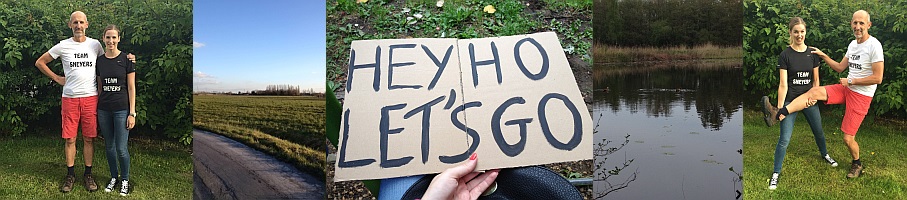 TEAM
SHEYERS
TEAM
SHEYERS
HEY HO
LET'S GO
TEAM
SHEYERS
TEAM
SHEYERS